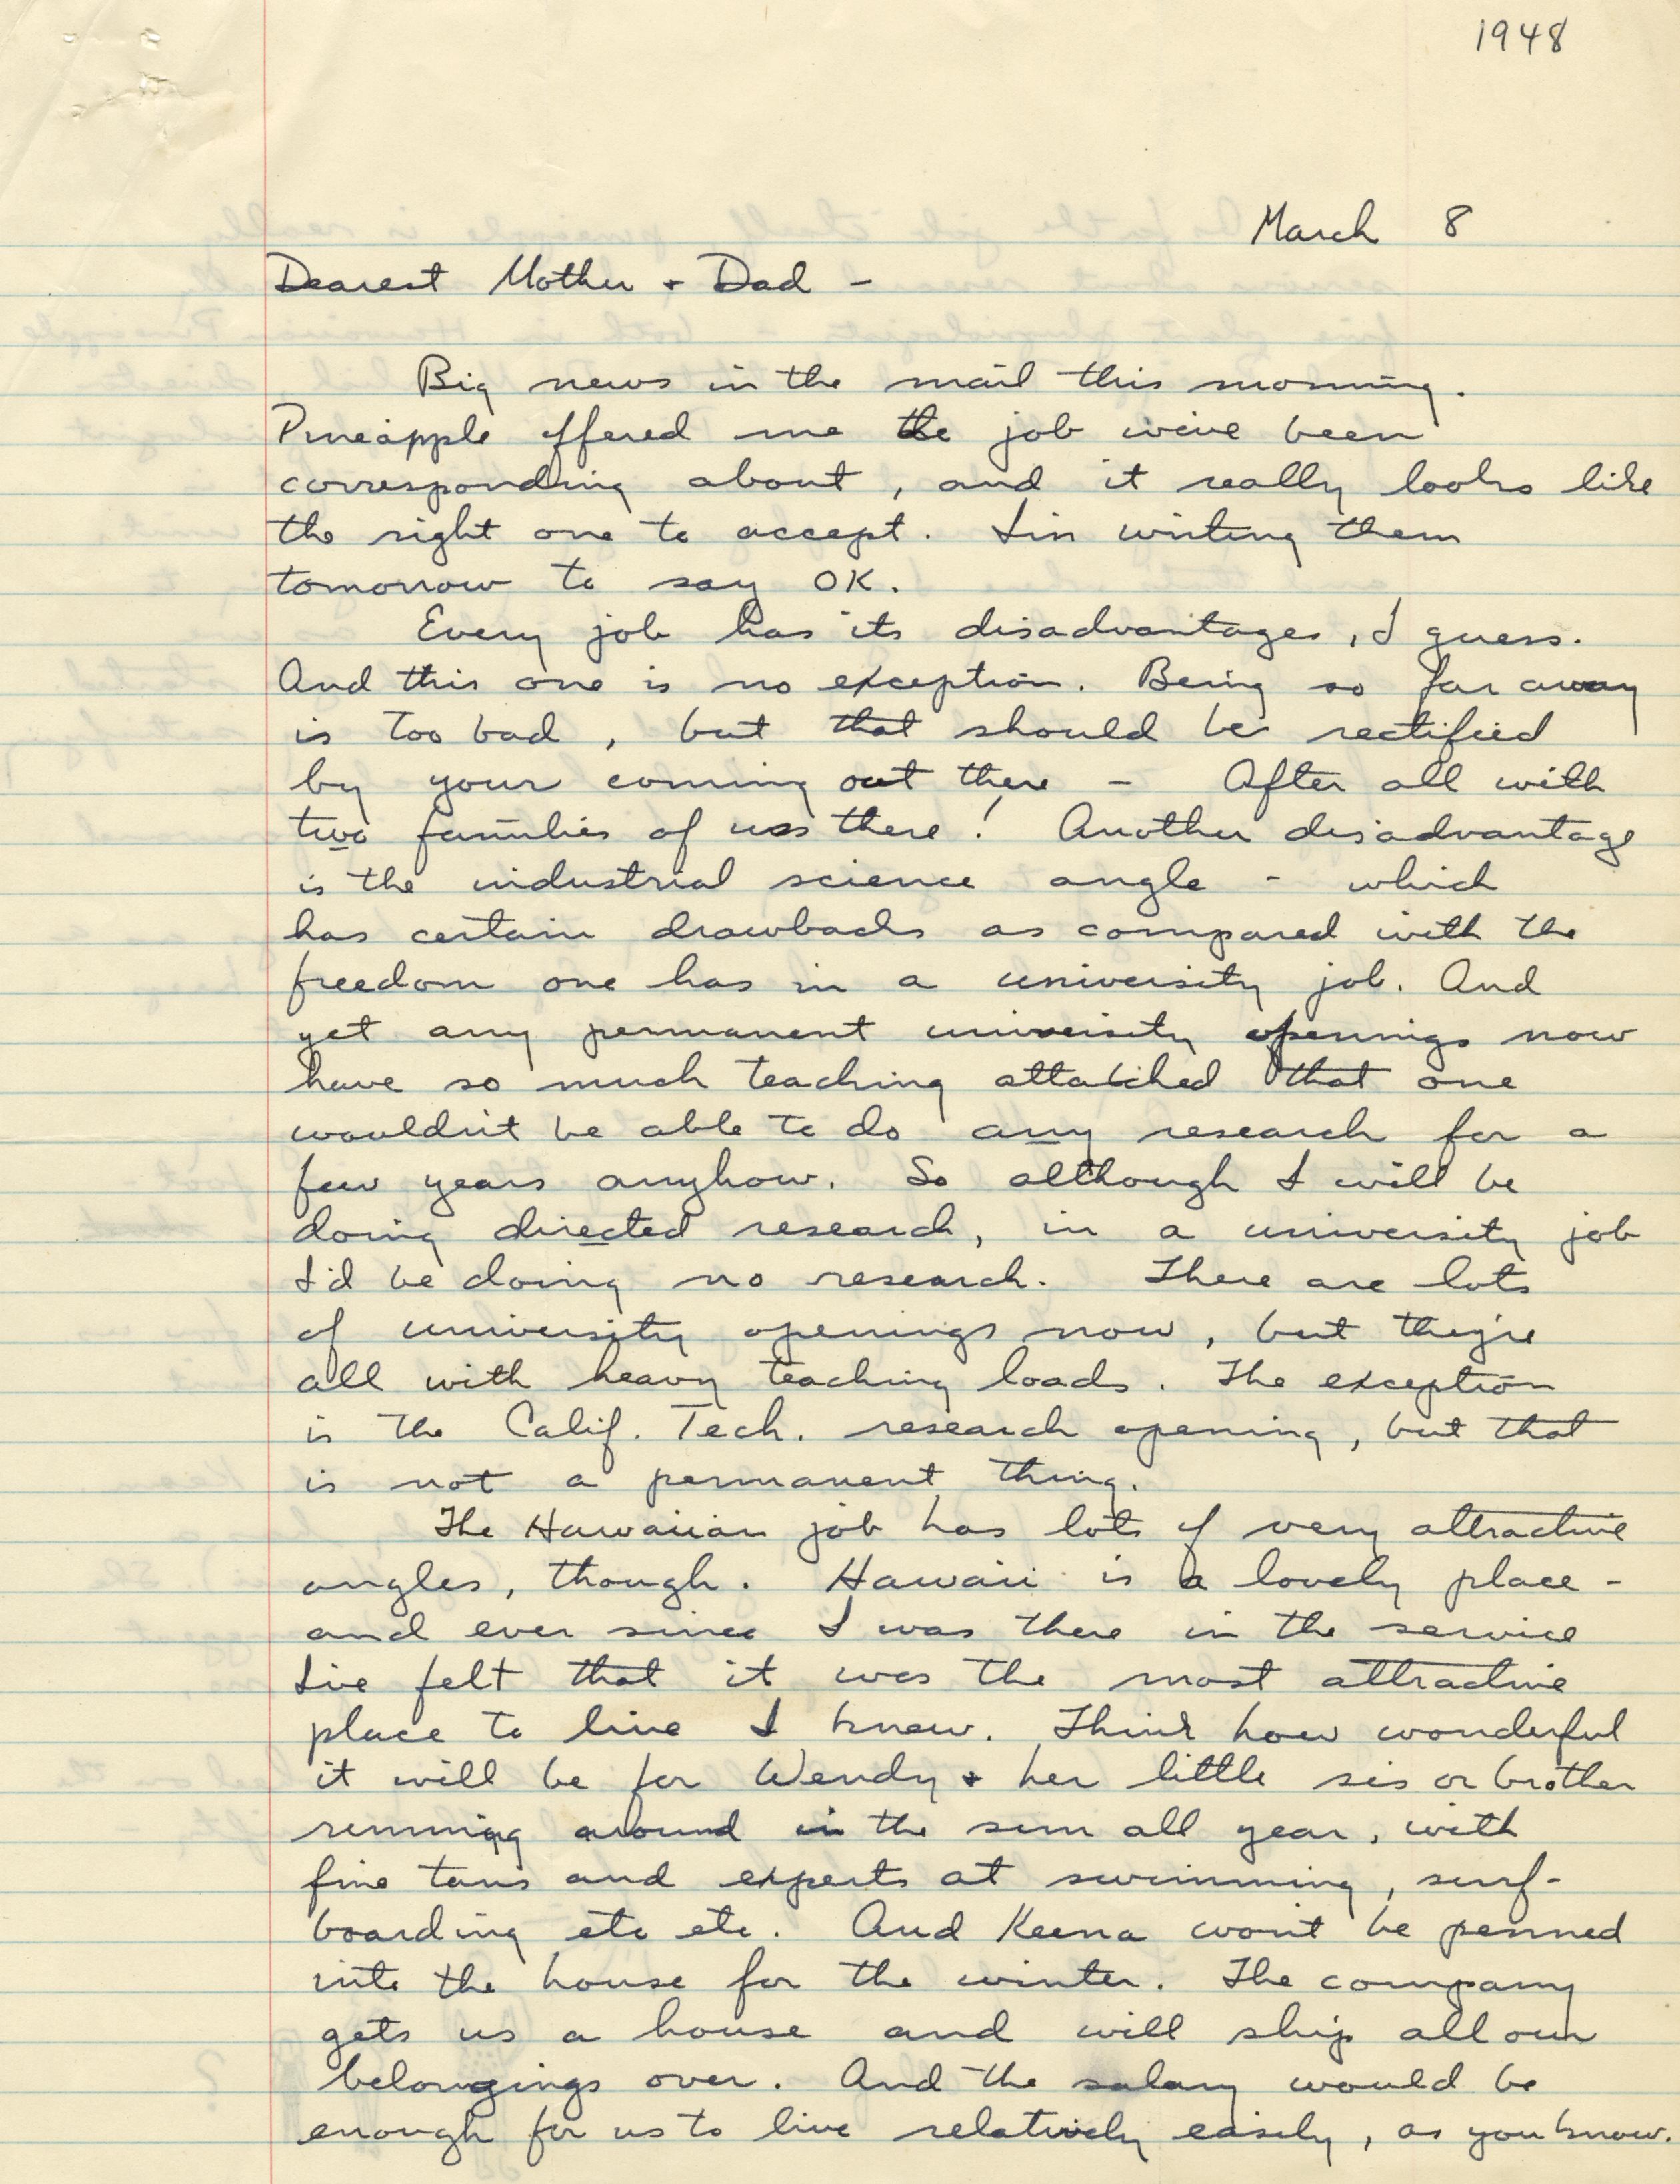 1948
March 8
Dearest Mother + Dad -
Big news in the mail this morning.
Pineapple offered me the job we've been
corresponding about, and it really looks like
the right one to accept. I'm writing them
tomorrow to say OK.
Every job has its disadvantages, I guess.
And this one is no exception. Being so far away
is too bad, but that should be rectified
by your coming out there - After all with
two families of us there! Another disadvantage
is the industrial science angle - which
has certain drawbacks as compared with the
freedom one has in a university job. And
yet any permanent university openings now
have so much teaching attatched that one
wouldn't be able to do any research for a
few years anyhow. So although I will be
doing directed research, in a university job
I'd be doing no research. There are lots
of university openings now, but they're
all with heavy teaching loads. The exception
is the Calif. Tech. research opening, but that
is not a permanent thing.
The Hawaiian job has lots of very attractive
angles, though. Hawaii is a lovely place -
and ever since I was there in the service
I've felt that it was the most attractive
place to live I knew. Think how wonderful
it will be for Wendy + her little sis or brother
running around in the sun all year, with
fine tans and experts at swimming, surf-
boarding etc etc. And Keena won't be penned
into the house for the winter. The company
gets us a house and will ship all our
belongings over. And the salary would be
enough for us to live relatively easily, as you know.